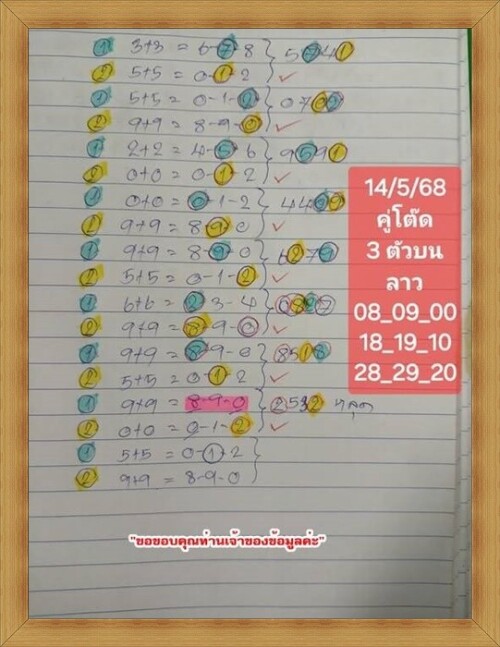 1 3+3 = 6-7-8 5741
2 5+5 = 0-1-2 ✓
1 5+5 = 0-1-2 0702
2 9+9 = 8-9-0 ✓
1 2+2 = 4-5-6 9591
2 0+0 = 0-1-2 ✓
1 0+0 = 0-1-2
2 9+9 = 8-9-0 ✓
1 9+9 = 8-9-0 6279
2 5+5 = 0-1-2 ✓
1 6+6 = 2-3-4 0827
2 9+9 = 8-9-0 ✓
1 9+9 = 8-9-0 8518
2 5+5 = 0-1-2 ✓
1 9+9 = 8-9-0 2532
2 0+0 = 0-1-2 ✓
1 5+5 = 0-1-2
2 9+9 = 8-9-0
14/5/68
คู่โต๊ด
3 ตัวบน
ลาว
08_09_00
18_19_10
28_29_20
"ขอขอบคุณท่านเจ้าของข้อมูลค่ะ"